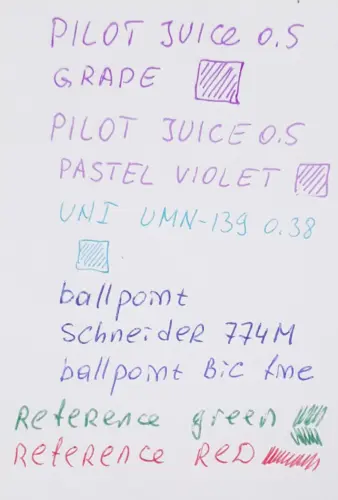 PILOT JUICE 0.5
GRAPE
PILOT JUICE 0.5
PASTEL VIOLET
UNI UMN-139 0.38
ballpoint
Schneider 774M
ballpoint Bic fine
Reference green
Reference Red